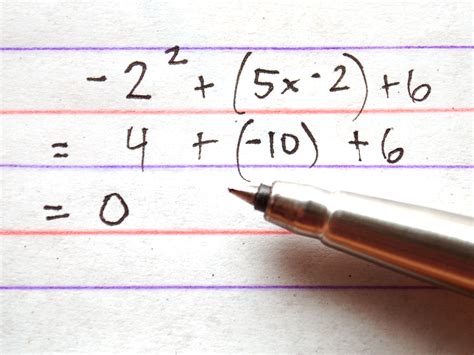 -2² + (5x-2) + 6
= 4 + (-10) + 6
= 0